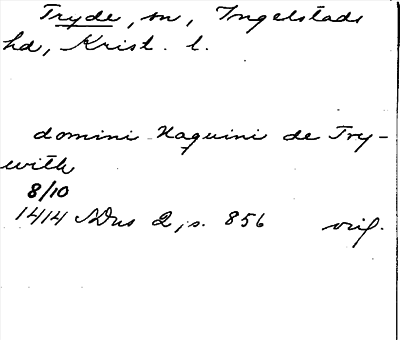 Tryde, sn, Ingelstads
hd, Krist. l.
domini Haquini de Try-
with
8/10
1414 NDns 2, s. 856 orig.